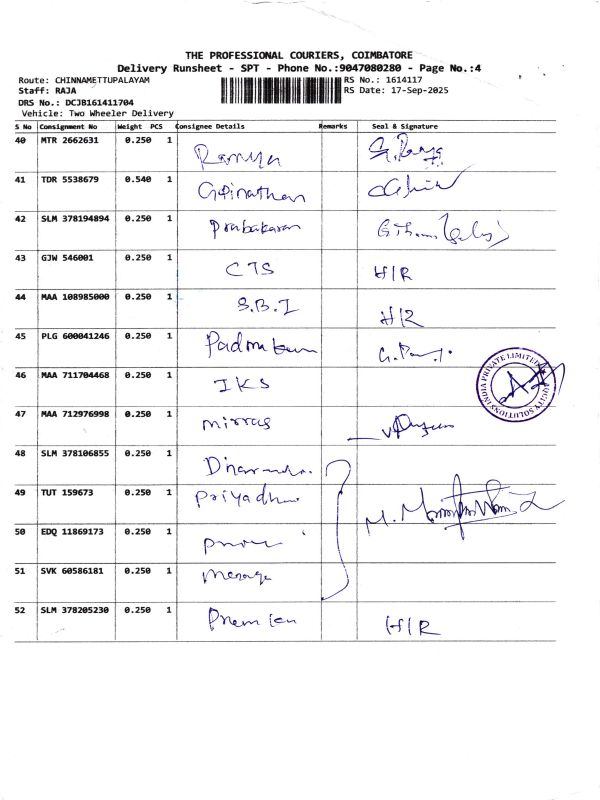 THE PROFESSIONAL COURIERS, COIMBATORE
Delivery Runsheet - SPT - Phone No.:9047080280 - Page No.:4
Route: CHINNAMETTUPALAYAM RS No.: 1614117
Staff: RAJA RS Date: 17-Sep-2025
DRS No.: DCJB161411704
Vehicle: Two Wheeler Delivery
S No Consignment No Weight PCS Consignee Details Remarks Seal & Signature
40 MTR 2662631 0.250 1 Ramya
41 TDR 5538679 0.540 1 Gopinathan
42 SLM 378194894 0.250 1 Prabakaran
43 GJW 546001 0.250 1 CTS H/R
44 MAA 108985000 0.250 1 S.B.I H/R
45 PLG 600041246 0.250 1
46 MAA 711704468 0.250 1 IKS
47 MAA 712976998 0.250 1 mirras
48 SLM 378106855 0.250 1
49 TUT 159673 0.250 1
50 EDQ 11869173 0.250 1
51 SVK 60586181 0.250 1
52 SLM 378205230 0.250 1 H/R
INDIA PRIVATE LIMITED
SOLUTIONS